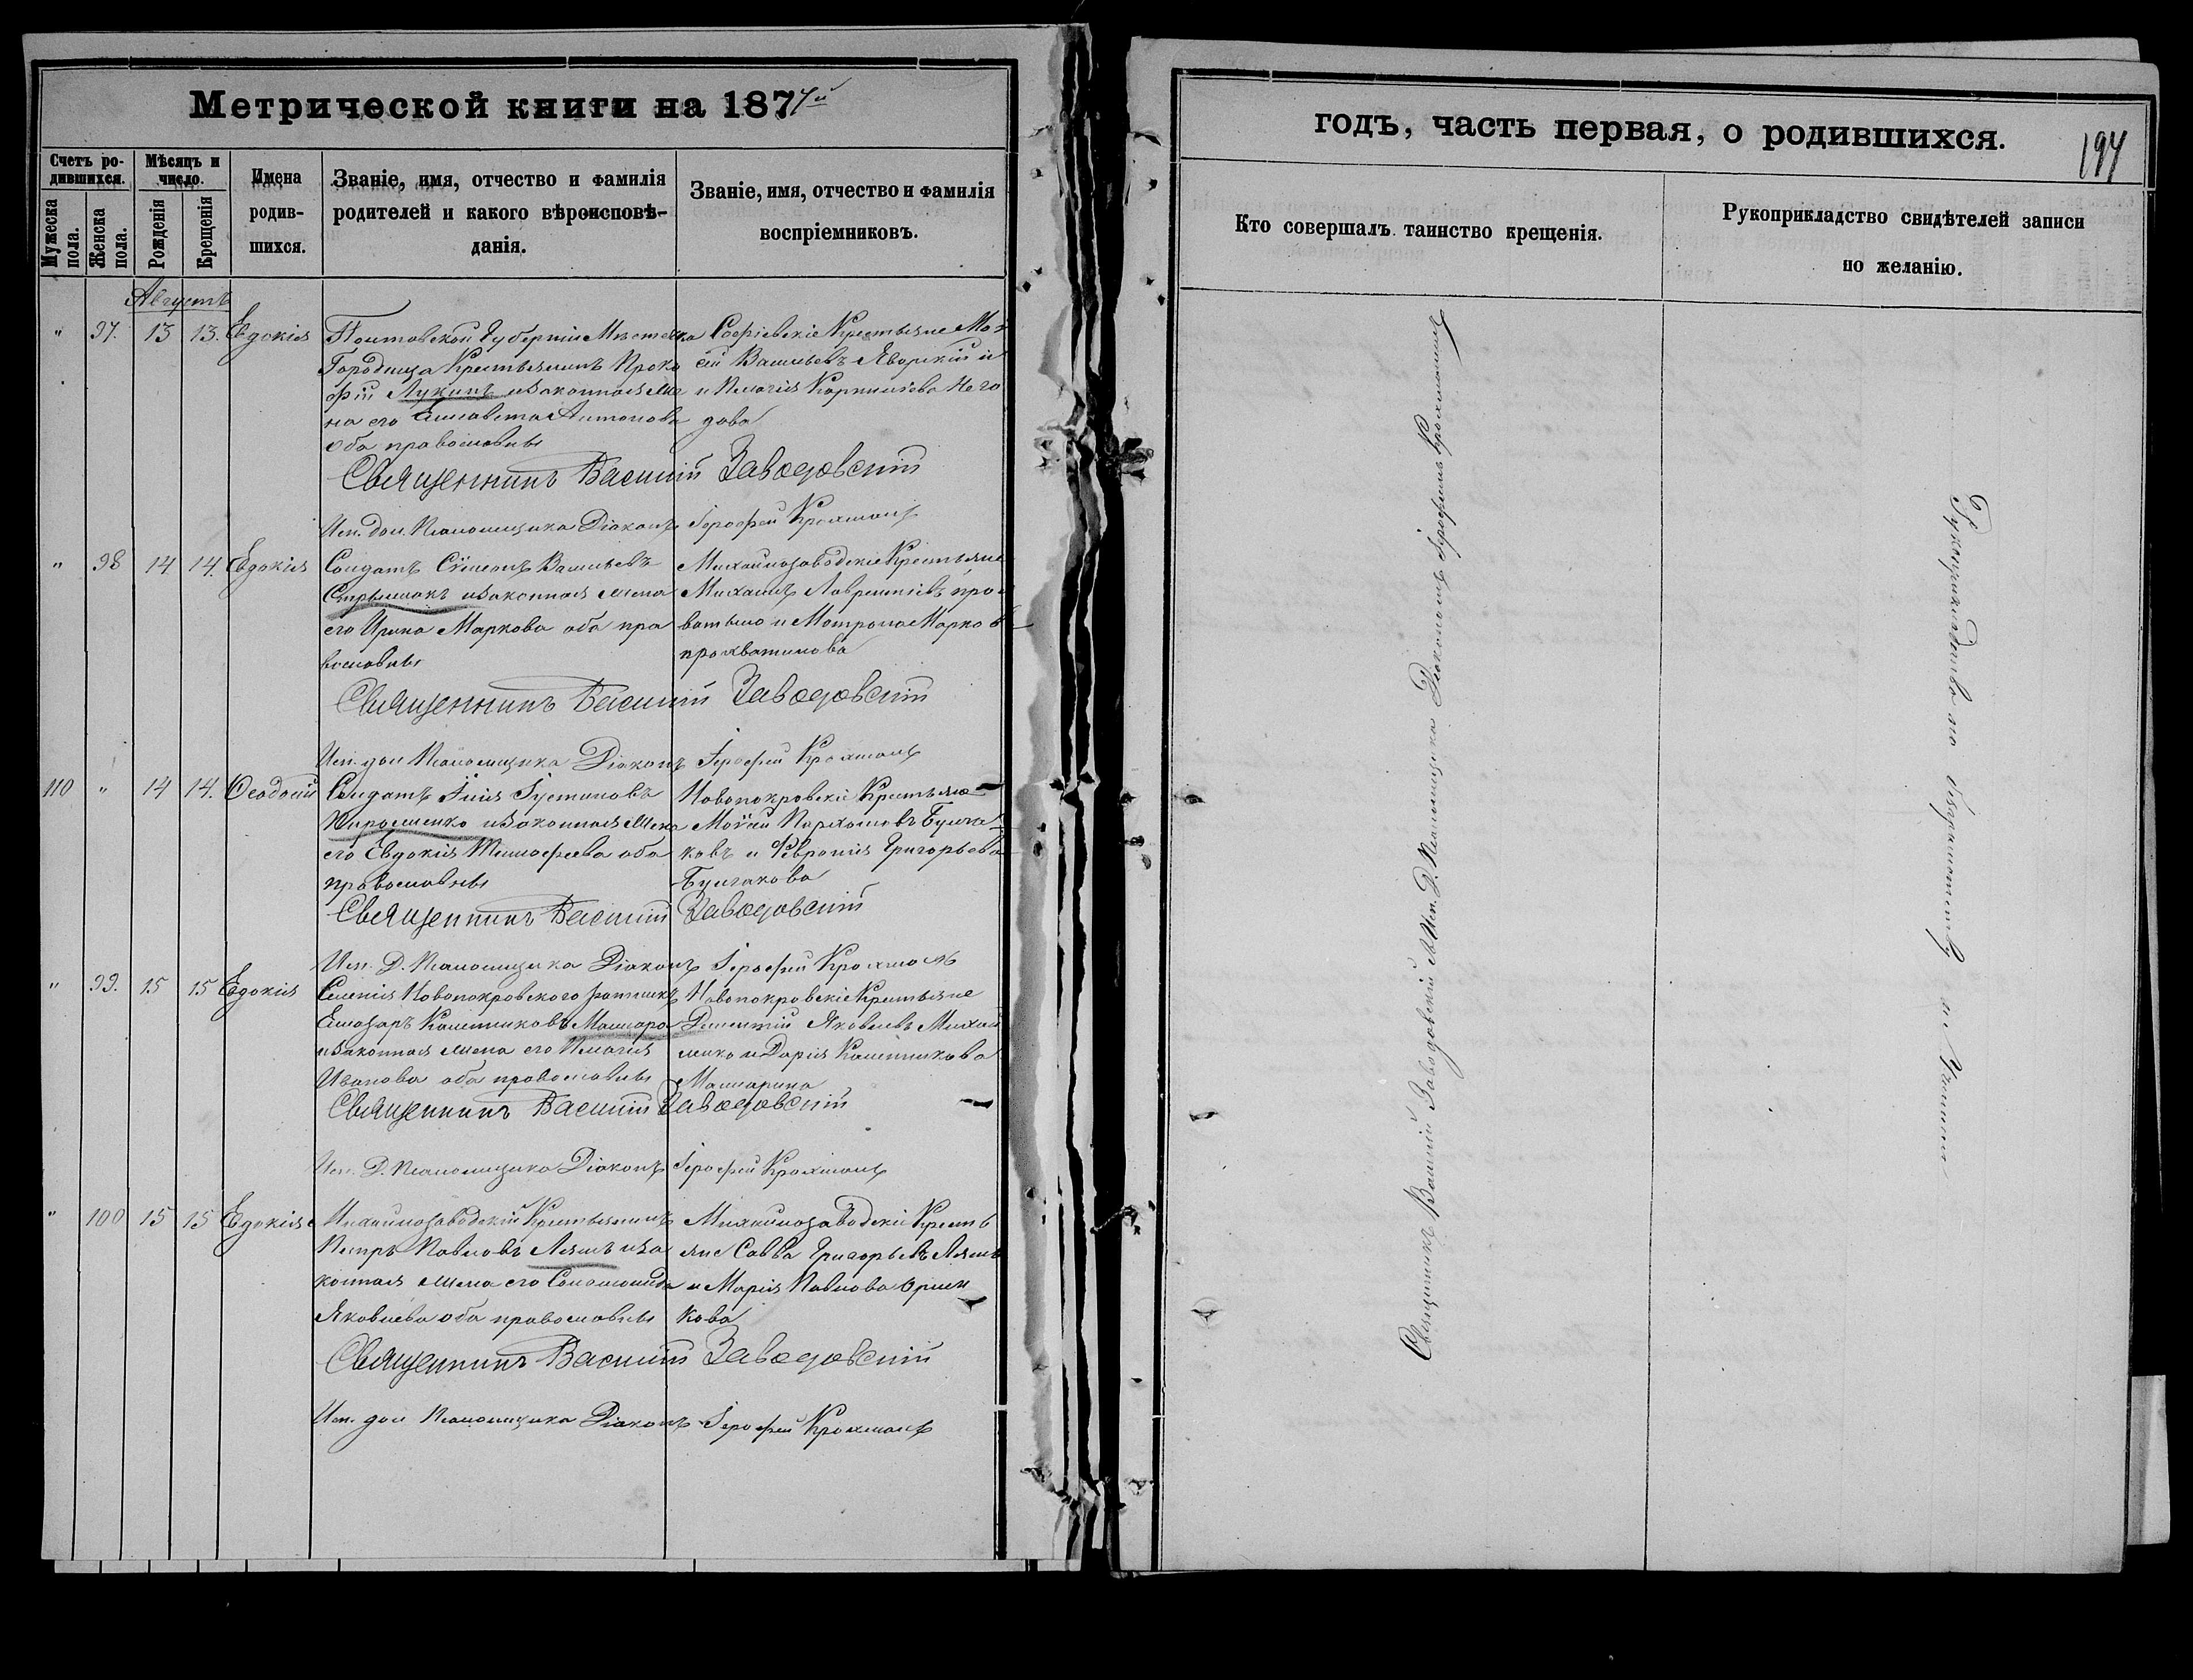 Метрической книги на 1877й
Счетъ ро-
дившихся.
Мѣсяцъ и
число.
Имена
родив-
шихся.
Званіе, имя, отчество и фамилія
родителей и какого вѣроисповѣ-
данія.
Званіе, имя, отчество и фамилія
воспріемниковъ.
Мужеска
пола.
Женска
пола.
Рожденія
Крещенія
Августъ
" 97. 13 13. Евдокія
Полтавской Губерніи Мѣстечка
Городища Крестьянинъ Проко
фій Лукинъ и законная же
на его Елисавета Антонова
оба православны
Софіевскіе Крестьяне
Васильевъ Яворскій и
и Пелагія Корнилова Него
дова
Священникъ Василій Заводовскій
Исп. дол. Псаломщика Діаконъ Іерофей Крохмаль
" 98 14 14. Евдокія
Солдатъ Сѵмеонъ Васильевъ
и законная жена
его Ирина Маркова оба пра
вославны
Михайлозаводскіе Крестьяне
Михаилъ Лаврентіевъ про
ватило и Матрона Марков
прохватилова
Священникъ Василій Заводовскій
Исп. дол Псаломщика Діаконъ Іерофей Крохмаль
110 " 14 14. Ѳеодосій
Солдатъ Илія Іустиновъ
и законная жена
его Евдокія Тимофеева оба
православны
Новопокровскіе Крестьяне
Моѵсей Пархомовъ Булга
ковъ и Феврoнія Григорьева
Булгакова
Священникъ Василій Заводовскій
Исп. Д. Псаломщика Діаконъ Іерофей Крохмаль
" 99. 15 15 Евдокія
Селенія Новопокровского
Елеазаръ Калинниковъ Машаро
и законная жена его Пелагія
Иванова оба православны
Новопокровскіе Крестьяне
Дементій Яковлевъ Михай
ленко и Дарія Калинникова
Машарина
Священникъ Василій Заводовскій
Исп. Д. Псаломщика Діаконъ Іерофей Крохмаль
" 100 15 15 Евдокія
Михайлозаводскій Крестьянинъ
Петръ Павловъ Ляшъ и за
конная жена его Соломонида
Яковлева оба православны
Михайлозаводскіе Кресть
яне Савва Григорьевъ Ляшъ
и Марія Павлова
кова
Священникъ Василій Заводовскій
Исп. дол Псаломщика Діаконъ Іерофей Крохмаль
годъ, часть первая, о родившихся.
194
Кто совершалъ таинство крещенія.
Рукоприкладство свидѣтелей записи
по желанію.
Священникъ Василій Заводовскій съ Исп. Д. Псаломщика Діакономъ Іерофеемъ Крохмалемъ
Рукоприкладство по безграмотству не учинили